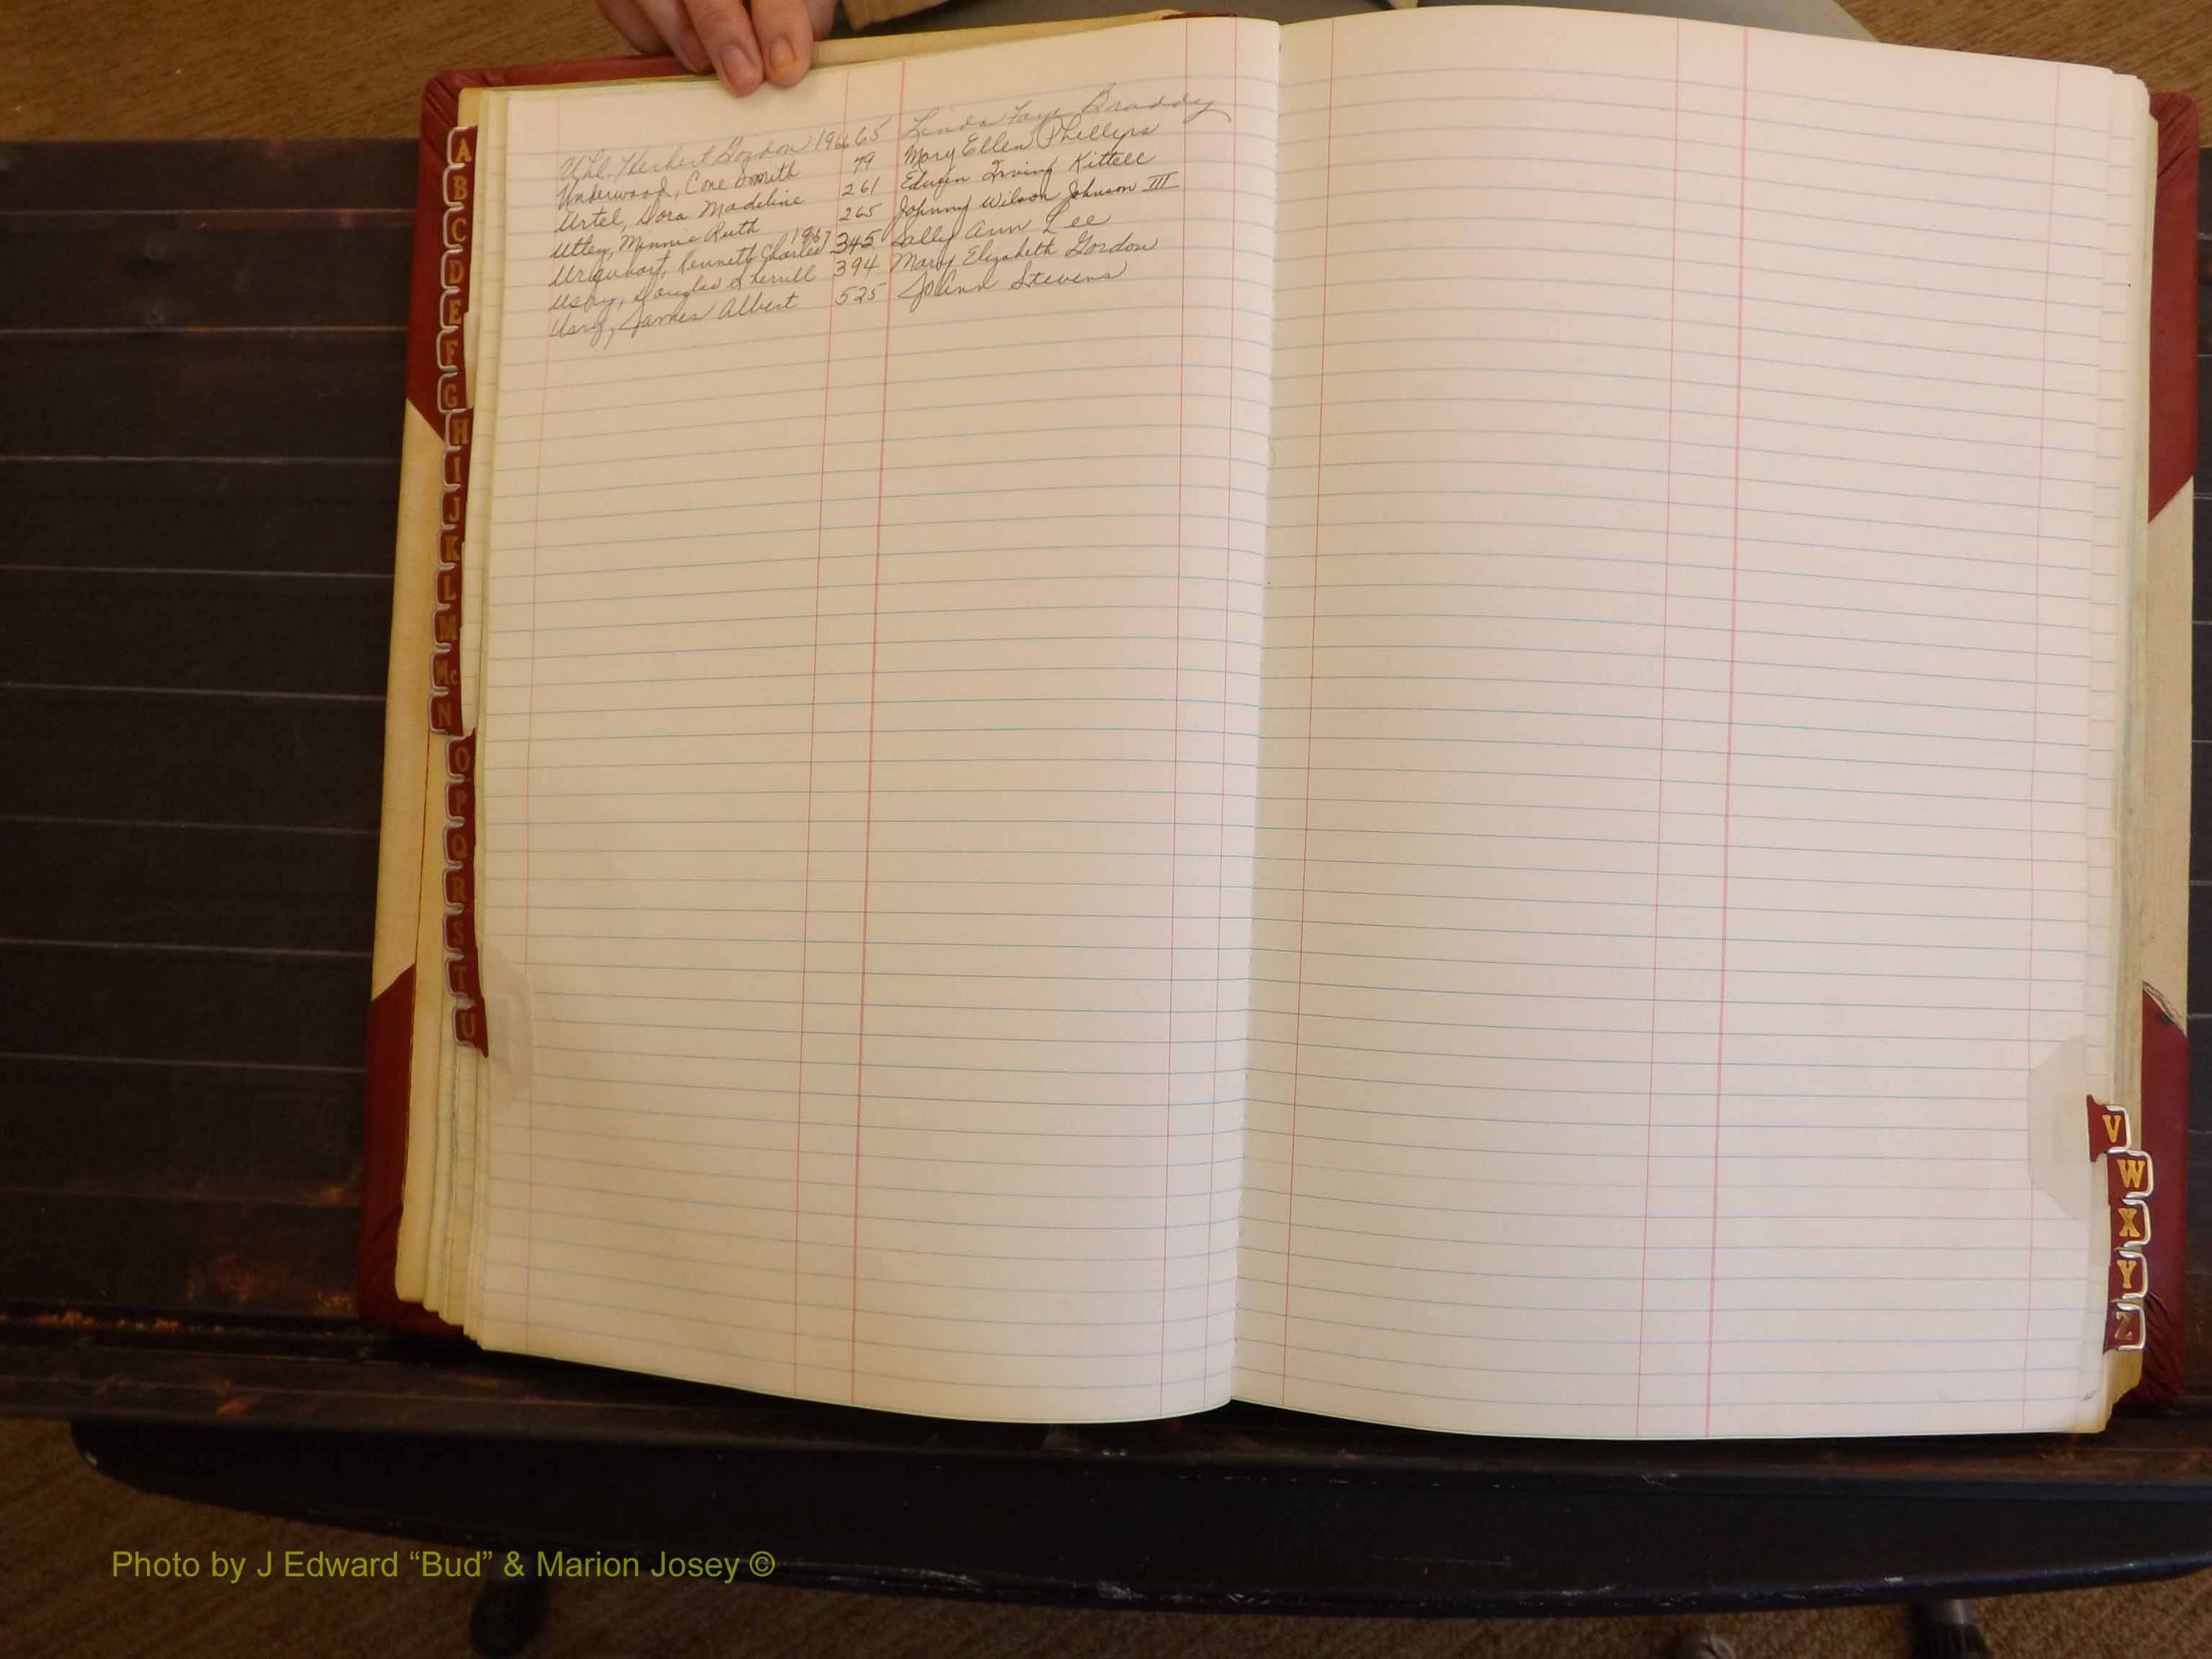 Uhl, Herbert Gordon 1966 65 Linda Faye Braddy
Underwood, Cone Smith 79 Mary Ellen Phillips
Urtel, Dora Madeline 261 Edwin Irving Kittell
Utley, Minnie Ruth 265 Johnny Wilson Johnson III
Urquhart, Kenneth Charles 1967 345 Sally Ann Lee
Usry, Douglas Sherrill 394 Mary Elizabeth Gordon
Usry, James Albert 525 JoAnn Stevens
A
B
C
D
E
F
G
H
I
J
K
L
M
Mc
N
O
P
Q
R
S
T
U
V
W
X
Y
Z
Photo by J Edward “Bud” & Marion Josey ©